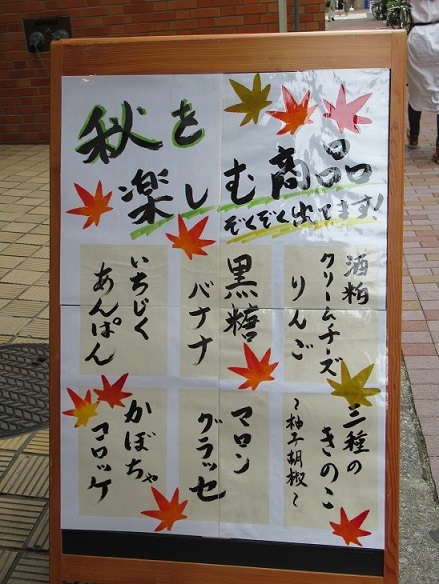 秋を
楽しむ商品
ぞくぞく出てます!
酒粕
クリームチーズ
りんご
黒糖
バナナ
いちじく
あんぱん
三種の
きのこ
～柚子胡椒～
マロン
グラッセ
かぼちゃ
コロッケ